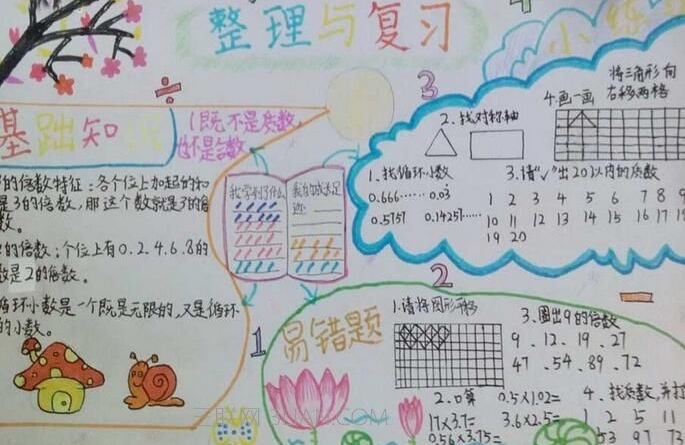 整理与复习
基础知识
1既不是质数,
也不是合数
的倍数特征:各个位上加起的和
是3的倍数,那这个数就是3的倍
数。
的倍数:个位上有0.2.4.6.8的
数是2的倍数。
循环小数是一个既是无限的,又是循环
的小数。
我学到了什么
我的成长足
迹
1
2
3
4
小练
1、找循环小数
0.666……
0.03
0.5757
0.14257……
2、找对称轴
3、请"√"出20以内的质数
1 2 3 4 5 6 7 8 9
10 11 12 13 14 15 16 17 18
19 20
4.画一画
将三角形向
右移两格
易错题
1.请将图形平移
2、口算
0.5×1.02=
17×3.7=
3.6×2.5=
0.56×3.75=
3、圈出9的倍数
9 . 12 . 19 . 27
47 . 54 . 89 . 72
4、找质数,并打
1 2 5 11
53 97 72
三联网 3LIAN.COM